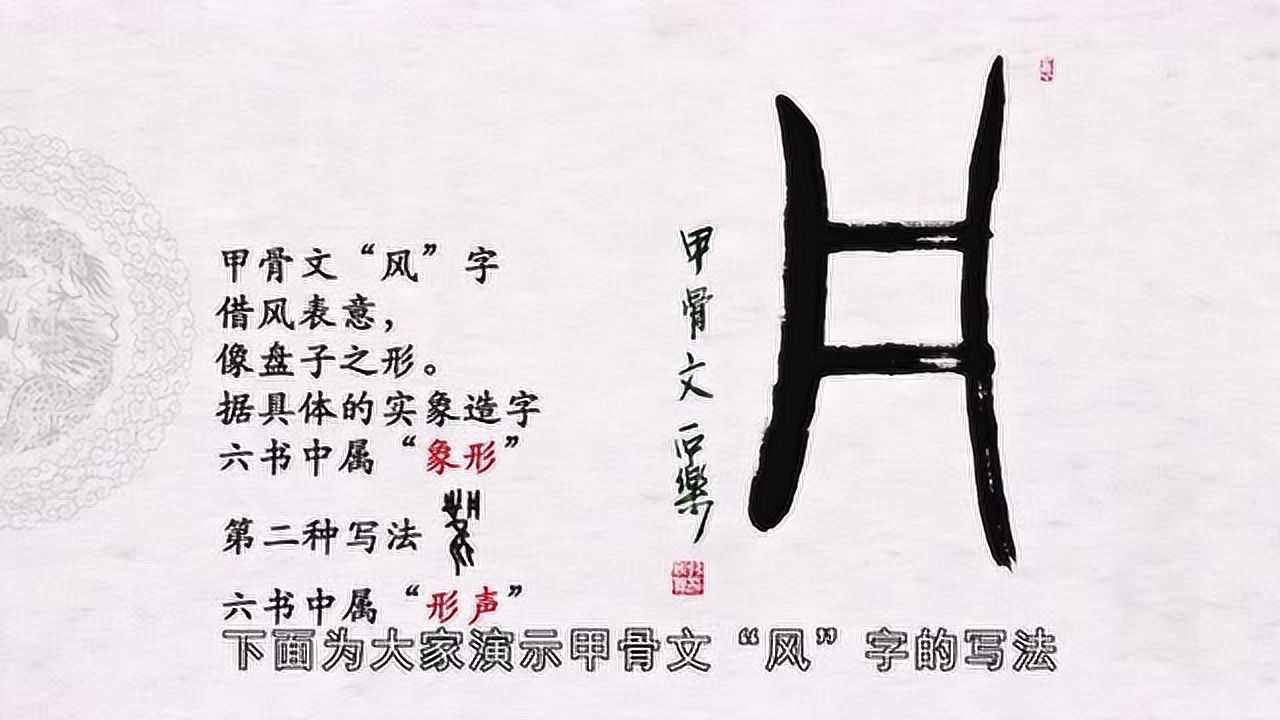 甲骨文“风”字
借风表意，
像盘子之形。
据具体的实象造字
六书中属“象形”
第二种写法
六书中属“形声”
甲骨文石乐
下面为大家演示甲骨文“风”字的写法